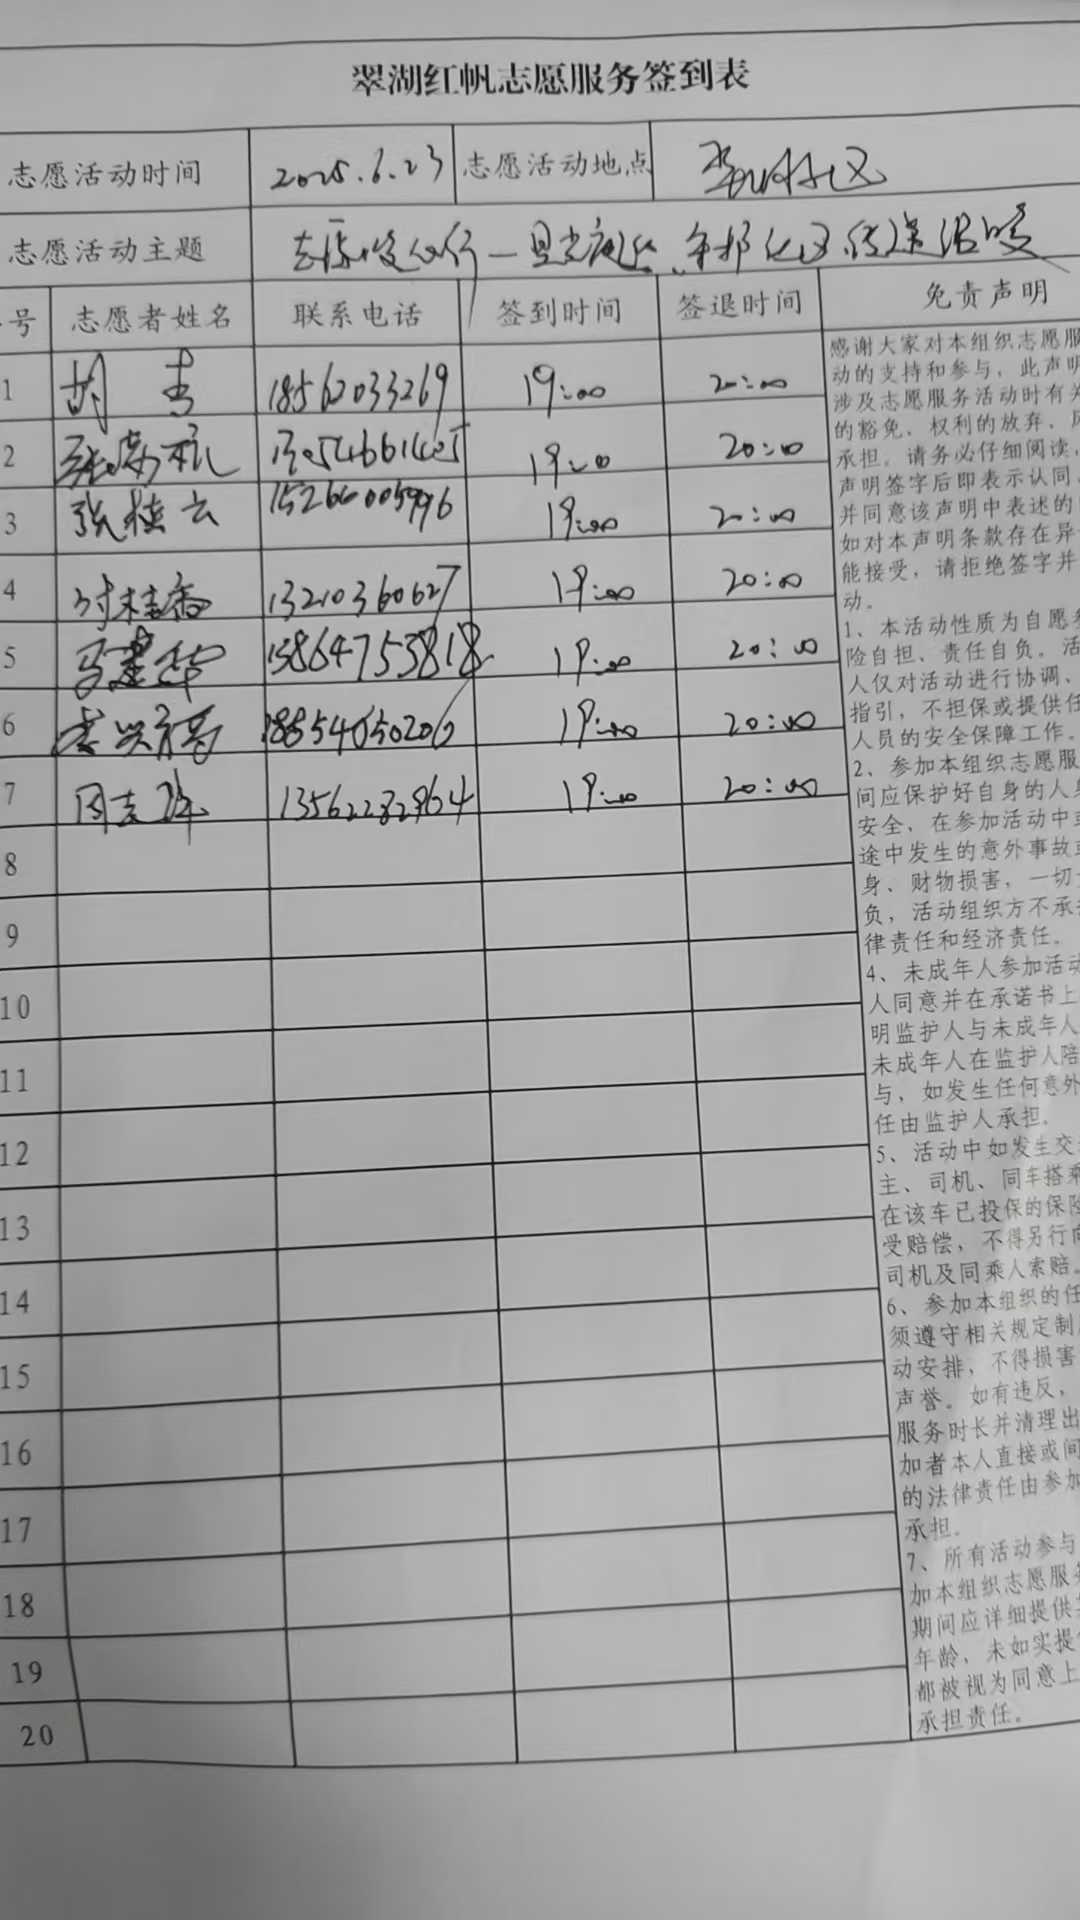 翠湖红帆志愿服务签到表
志愿活动时间 2025.6.23 志愿活动地点
志愿活动主题
号 志愿者姓名 联系电话 签到时间 签退时间 免责声明
1 胡 18562033269 19:00 20:00
2 张 19:00 20:00
3 张桂云 19:00 20:00
4 13210360627 19:00 20:00
5 马建华 15864755818 19:00 20:00
6 19:00 20:00
7 周志 13562282964 19:00 20:00
8
9
10
11
12
13
14
15
16
17
18
19
20
感谢大家对本组织志愿服
动的支持和参与，此声明
涉及志愿服务活动时有关
的豁免、权利的放弃、
承担，请务必仔细阅读，
声明签字后即表示认同
并同意该声明中表述的
如对本声明条款存在异
能接受，请拒绝签字并
动。
1、本活动性质为自愿参
险自担、责任自负。活
人仅对活动进行协调、
指引，不担保或提供任
人员的安全保障工作。
2、参加本组织志愿服
间应保护好自身的人身
安全，在参加活动中或
途中发生的意外事故或
身、财物损害，一切
负，活动组织方不承担
律责任和经济责任。
4、未成年人参加活动
人同意并在承诺书上
明监护人与未成年人
未成年人在监护人陪
与，如发生任何意外
任由监护人承担。
5、活动中如发生交
主、司机、同车搭乘
在该车已投保的保险
受赔偿，不得另行向
司机及同乘人索赔。
6、参加本组织的任
须遵守相关规定制
动安排，不得损害
声誉。如有违反，
服务时长并清理出
加者本人直接或间
的法律责任由参加
承担。
7、所有活动参与
加本组织志愿服务
期间应详细提供
年龄，未如实提
都被视为同意上
承担责任。